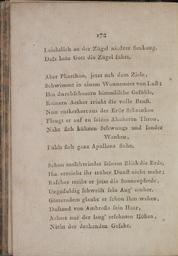 172
Leichtlich an der Zügel
Daß kein Gott die Zügel führt.
Aber Phaethon, jetzt nah dem Ziele,
Schwimmt in einem Wonnemeer von Luft;
Ihn durchschauern himmlische Gefühle,
Reinern Aether trinkt die volle Brust.
Nun entkerkert aus der Erde Schranken
Fleugt er auf zu seiner Ahnherrn Thron,
Näht sich kühnen Schwungs und sonder
Wanken,
Fühlt sich ganz Apollons Sohn.
Schon entschwindet seinem Blick die Erde,
Ihn erreicht ihr trüber Dunst nicht mehr;
Rascher treibt er jetzt die Sonnenpferde,
Ungeduldig schweift sein Aug' umher.
Götterwonnen glaubt er schon ihm wehen,
Duftend von Ambrosia sein Haar,
Achtet nur der lang' ersehnten Höhen,
Nicht der drohenden Gefahr.